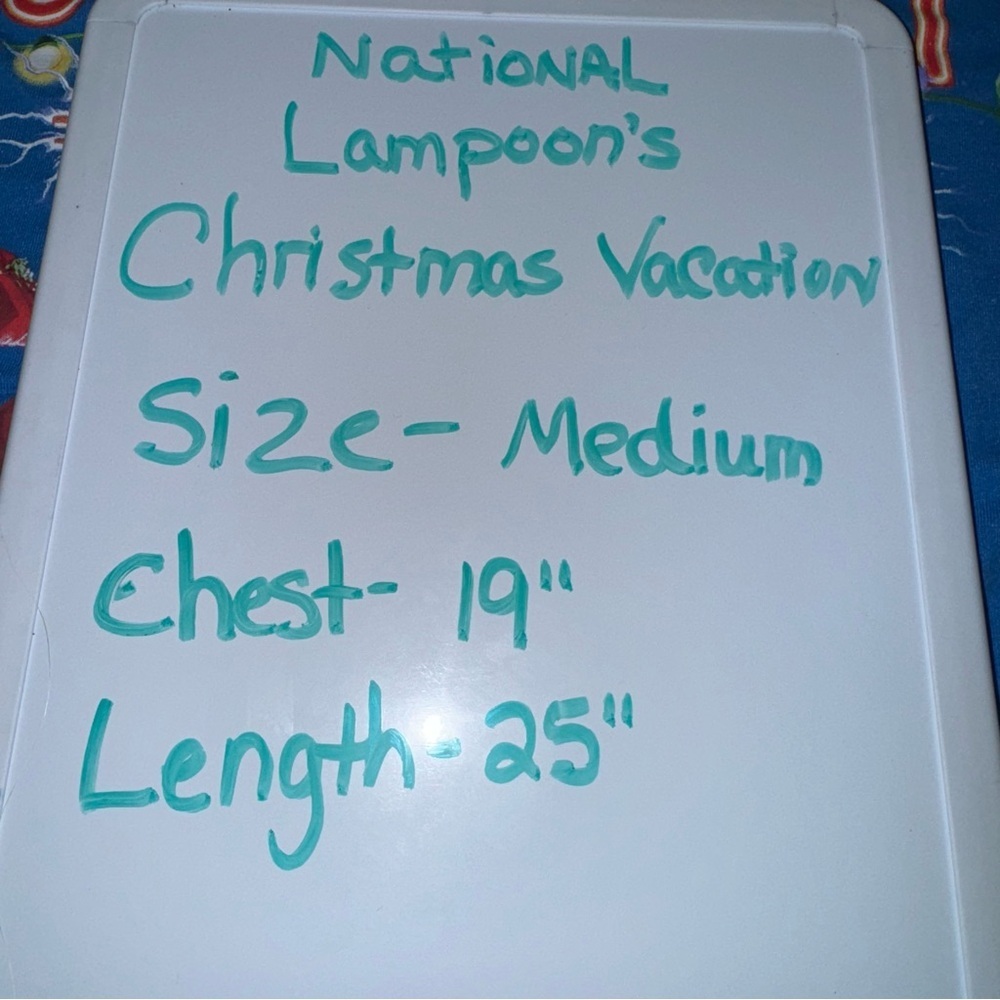 NatioNAL
Lampoon's
Christmas Vacation
Size- Medium
Chest- 19"
Length-25"